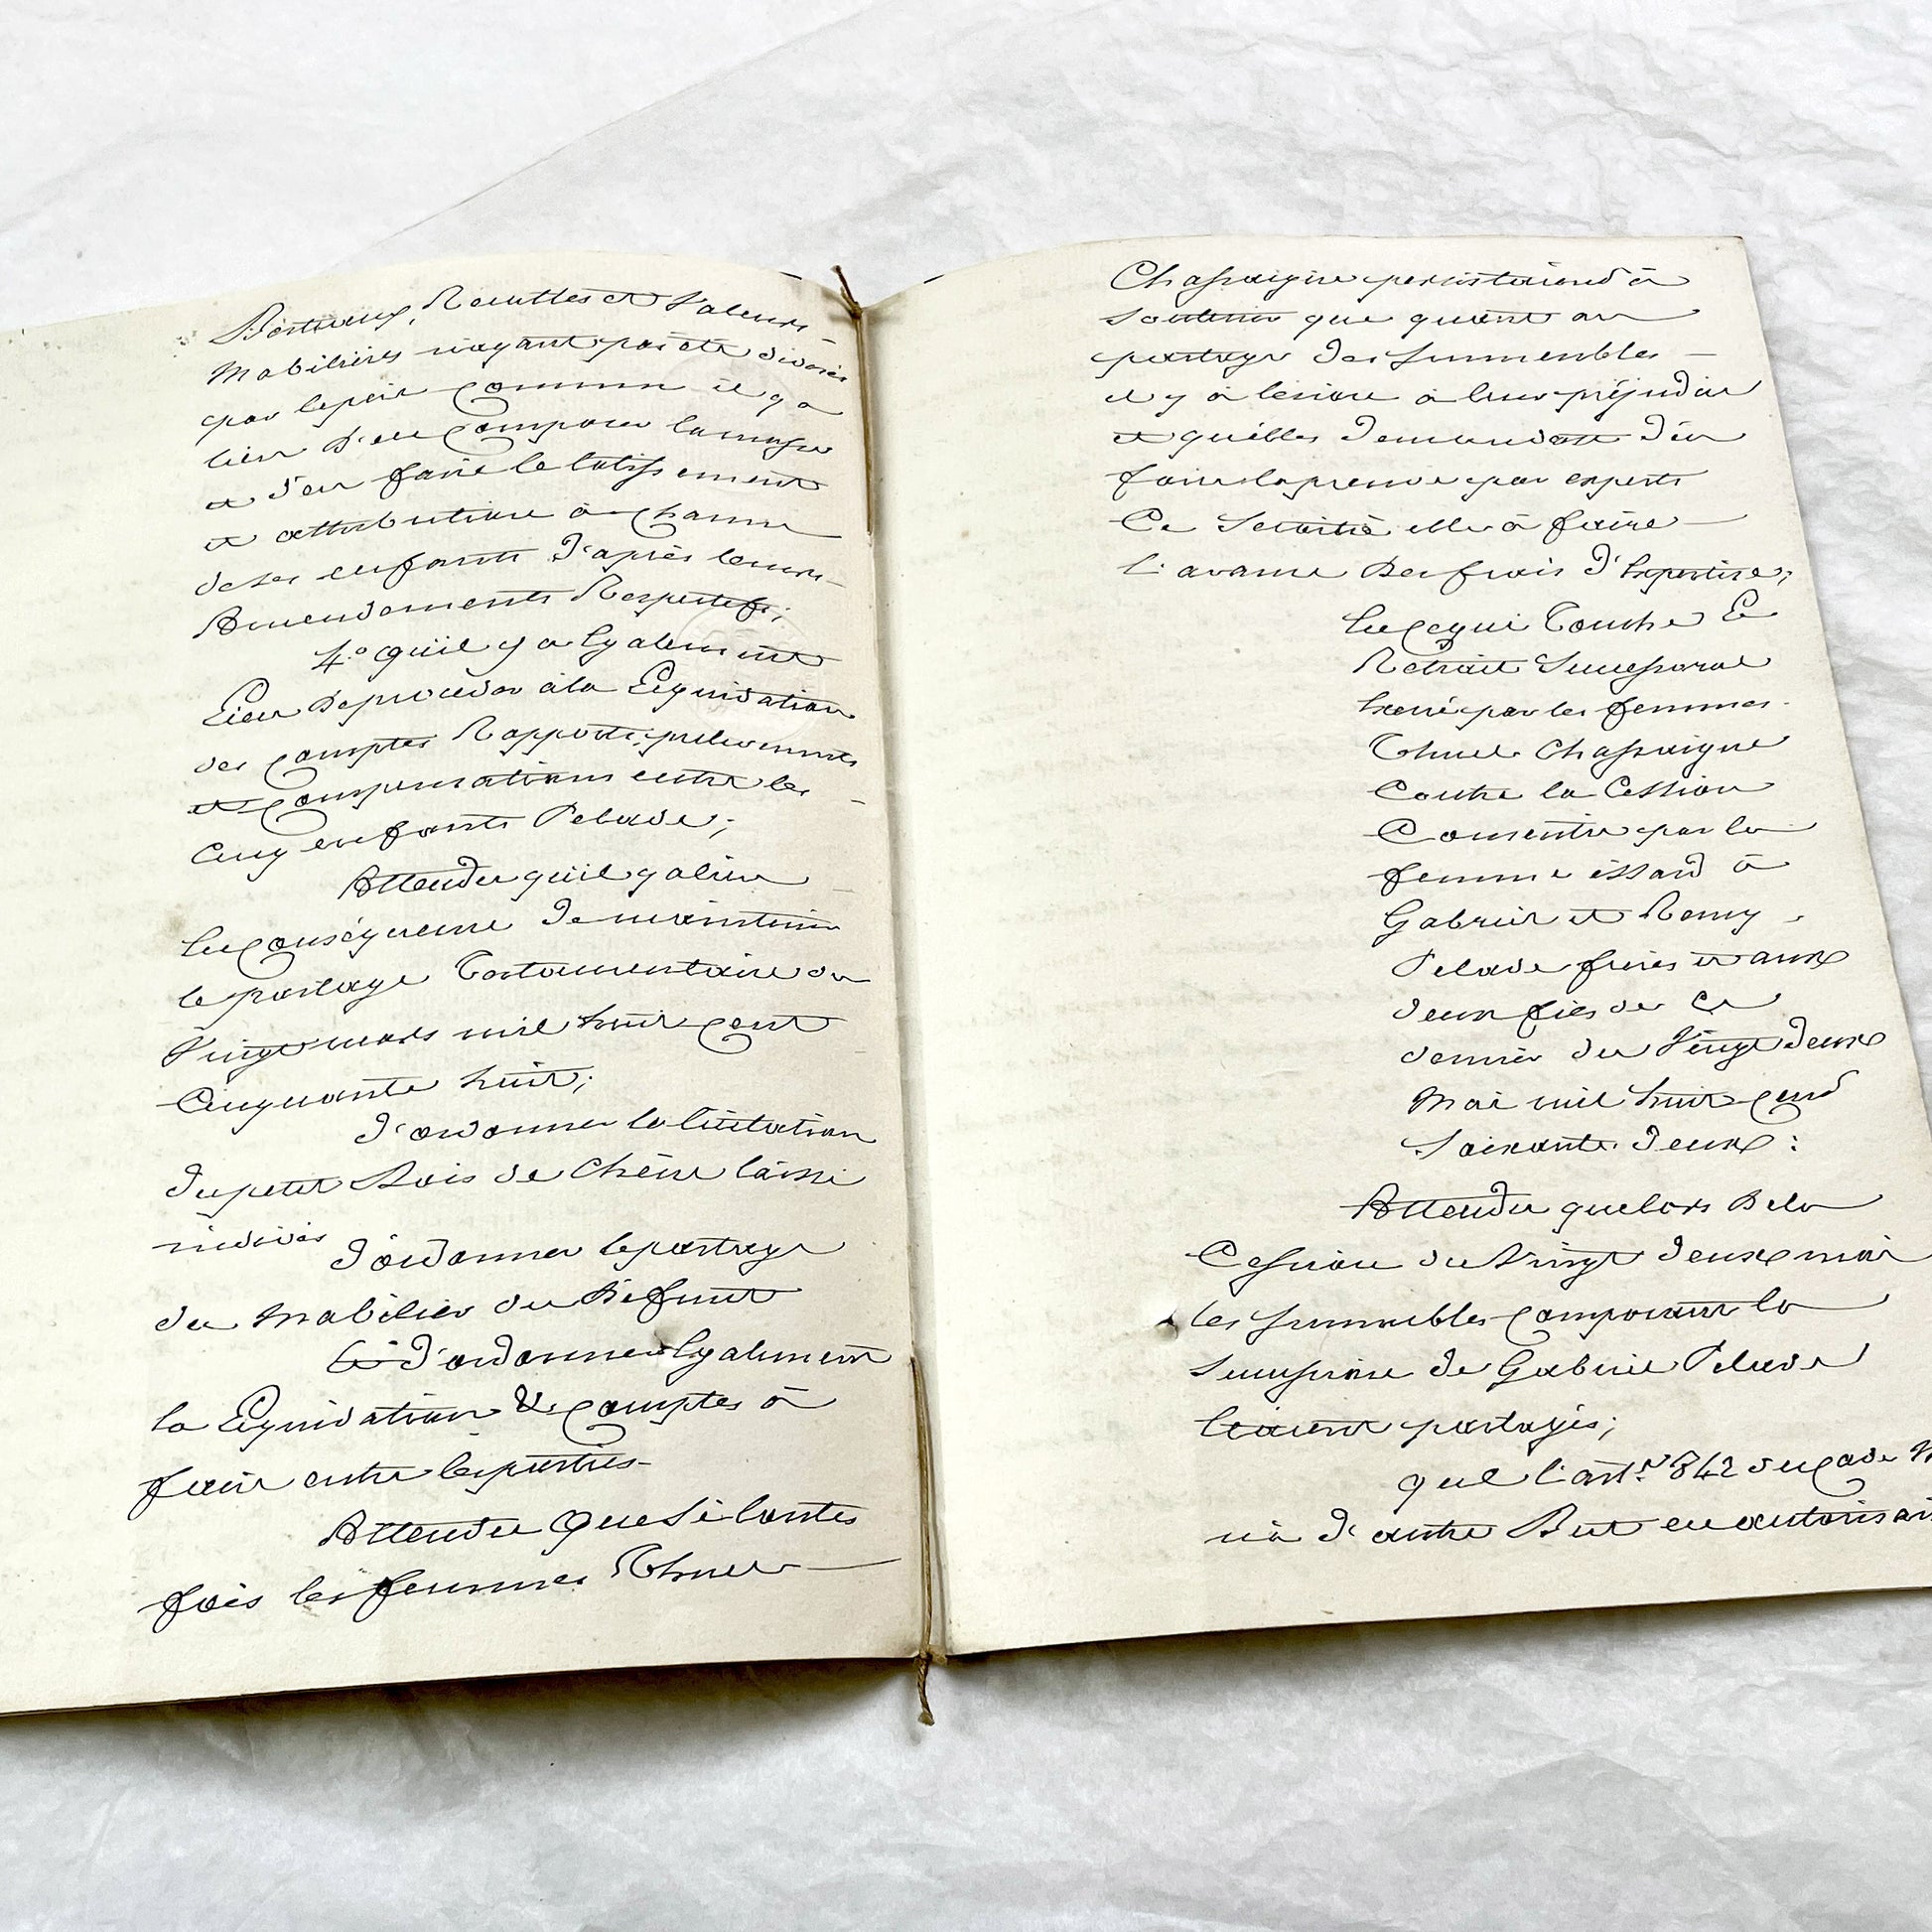 Bestiaux, Récoltes et Valeurs
Mobilières n'ayant pas été divisés
par le père commun il y a
lieu d'en Composer la masse
et d'en faire le lotissement
et attribution à Chacun
de ses enfants d'après leurs
Amendements Respectifs;
4.° qu'il y a Egalement
Lieu de procéder à la Liquidation
des Comptes Rapports, prélèvements
et Compensations entre les
cinq enfants Pelade;
Attendu qu'il y a lieu
En Conséquence de maintenir
le partage Testamentaire du
Vingt mars mil huit Cent
Cinquante huit;
d'ordonner la licitation
du petit Bois de Chêne laissé
indivis
d'ordonner le partage
du Mobilier du Défunt
d'ordonner Egalement
la Liquidation de Comptes à
faire entre les parties
Attendu Que Si toutes
fois les femmes Thuel
Chassaigne persistaient à
Soutenir que quant au
partage des Immeubles
il y a lésion à leur préjudice
et qu'elles demandent d'en
faire la preuve par experts
Ce Serait à elles à faire
l'avance des frais d'Expertise;
En Ce qui Touche Le
Retrait Successoral
Exercé par les femmes
Thuel Chassaigne
Contre la Cession
Consentie par la
femme issard à
Gabriel et Remy
Pelade frères et aux
deux fils de Ce
dernier du Vingt deux
Mai mil huit Cent
Soixante deux:
Attendu que lors de la
Cession du Vingt deux mai
les Immeubles Composant la
Succession de Gabriel Pelade
Etaient partagés;
que l'art. 842 du Code N
n'a d'autre But en autorisant